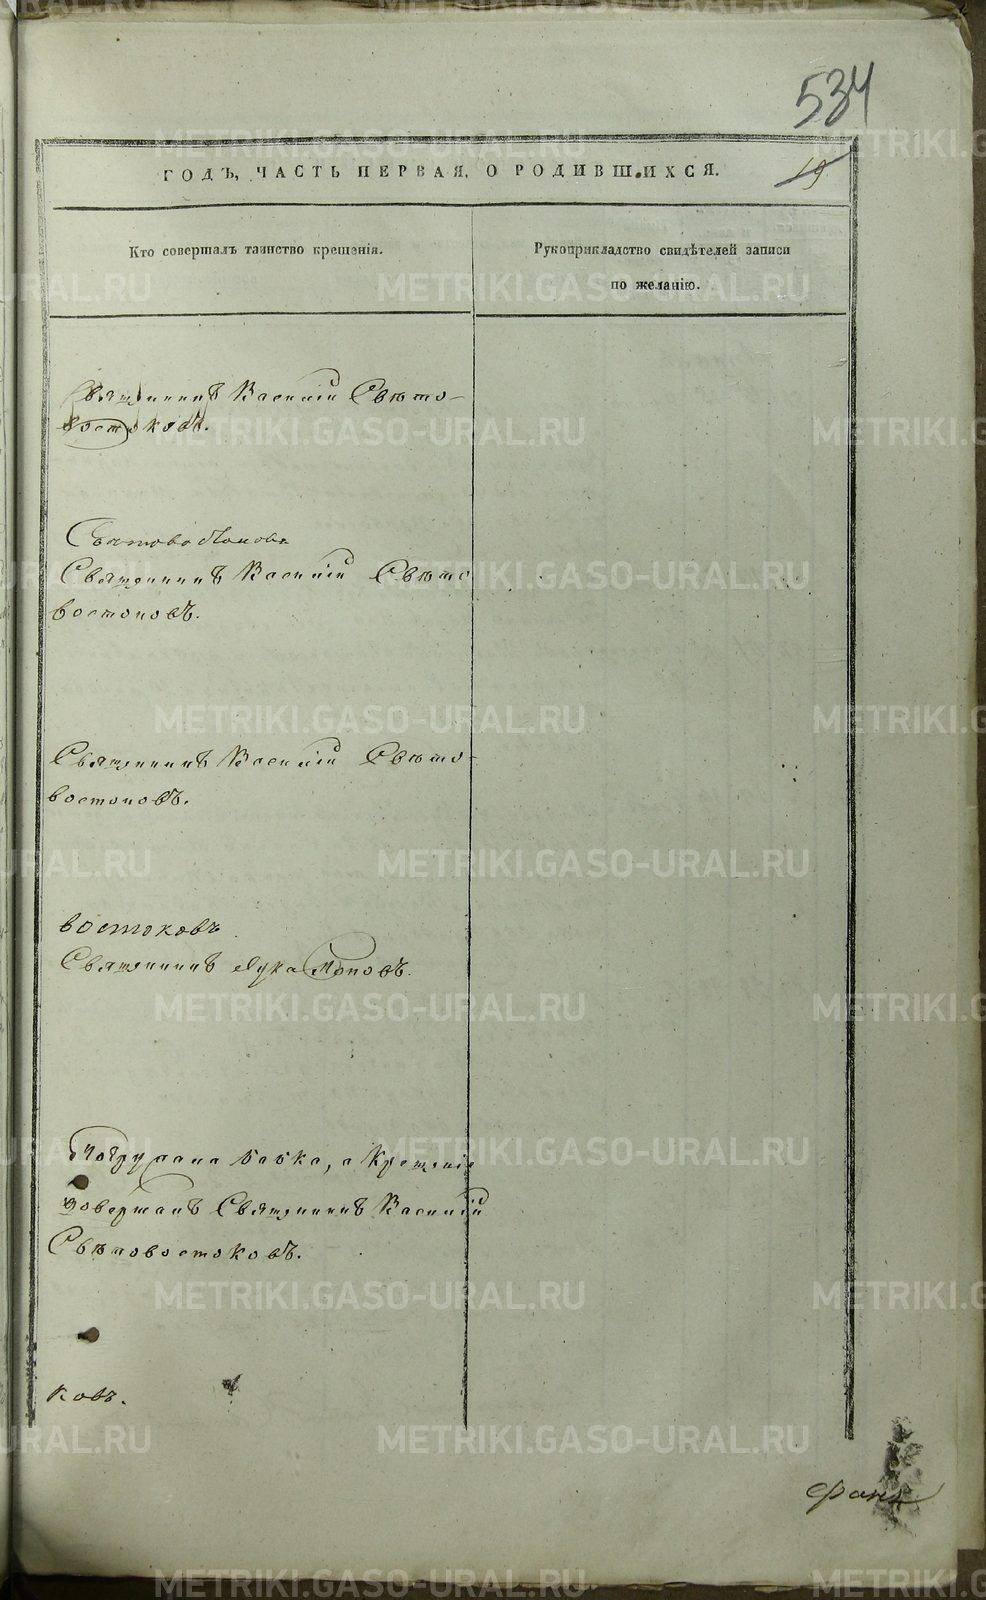 534
ГОДЪ, ЧАСТЬ ПЕРВАЯ, О РОДИВШИХСЯ.
19
Кто совершалъ таинство крещенія.
Рукоприкладство свидѣтелей записи
по желанію.
Священникъ Василій Свѣто-
востоковъ.
Священникъ Василій Свѣто
востоковъ.
Священникъ Василій Свѣто-
востоковъ.
востоковъ
Священникъ Лука Поповъ.
Погружала бабка, а Крещеніе
совершалъ Священникъ Василій
Свѣтовостоковъ.
ковъ.
METRIKI.GASO-URAL.RU